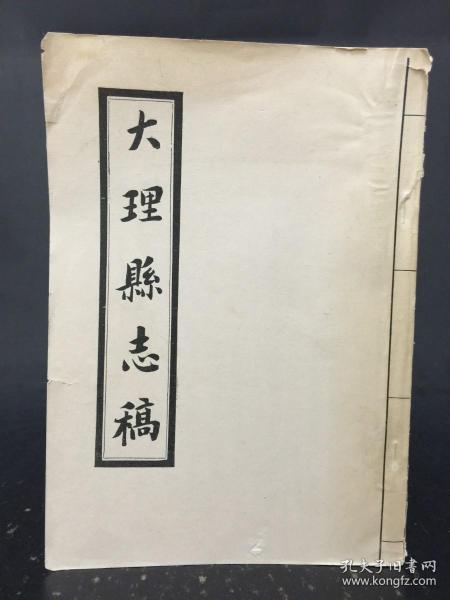 大理縣志稿
孔夫子旧书网
www.kongfz.com